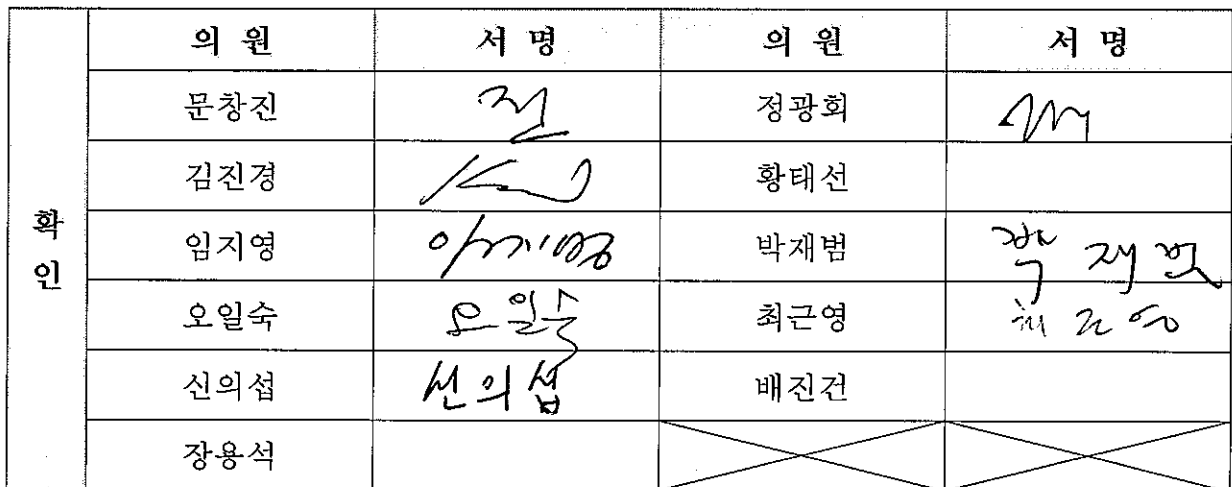 확인
의 원 서 명 의 원 서 명
문창진 정광회
김진경 황태선
임지영 임지영 박재범 박재범
오일숙 오일숙 최근영 최근영
신의섭 신의섭 배진건
장용석